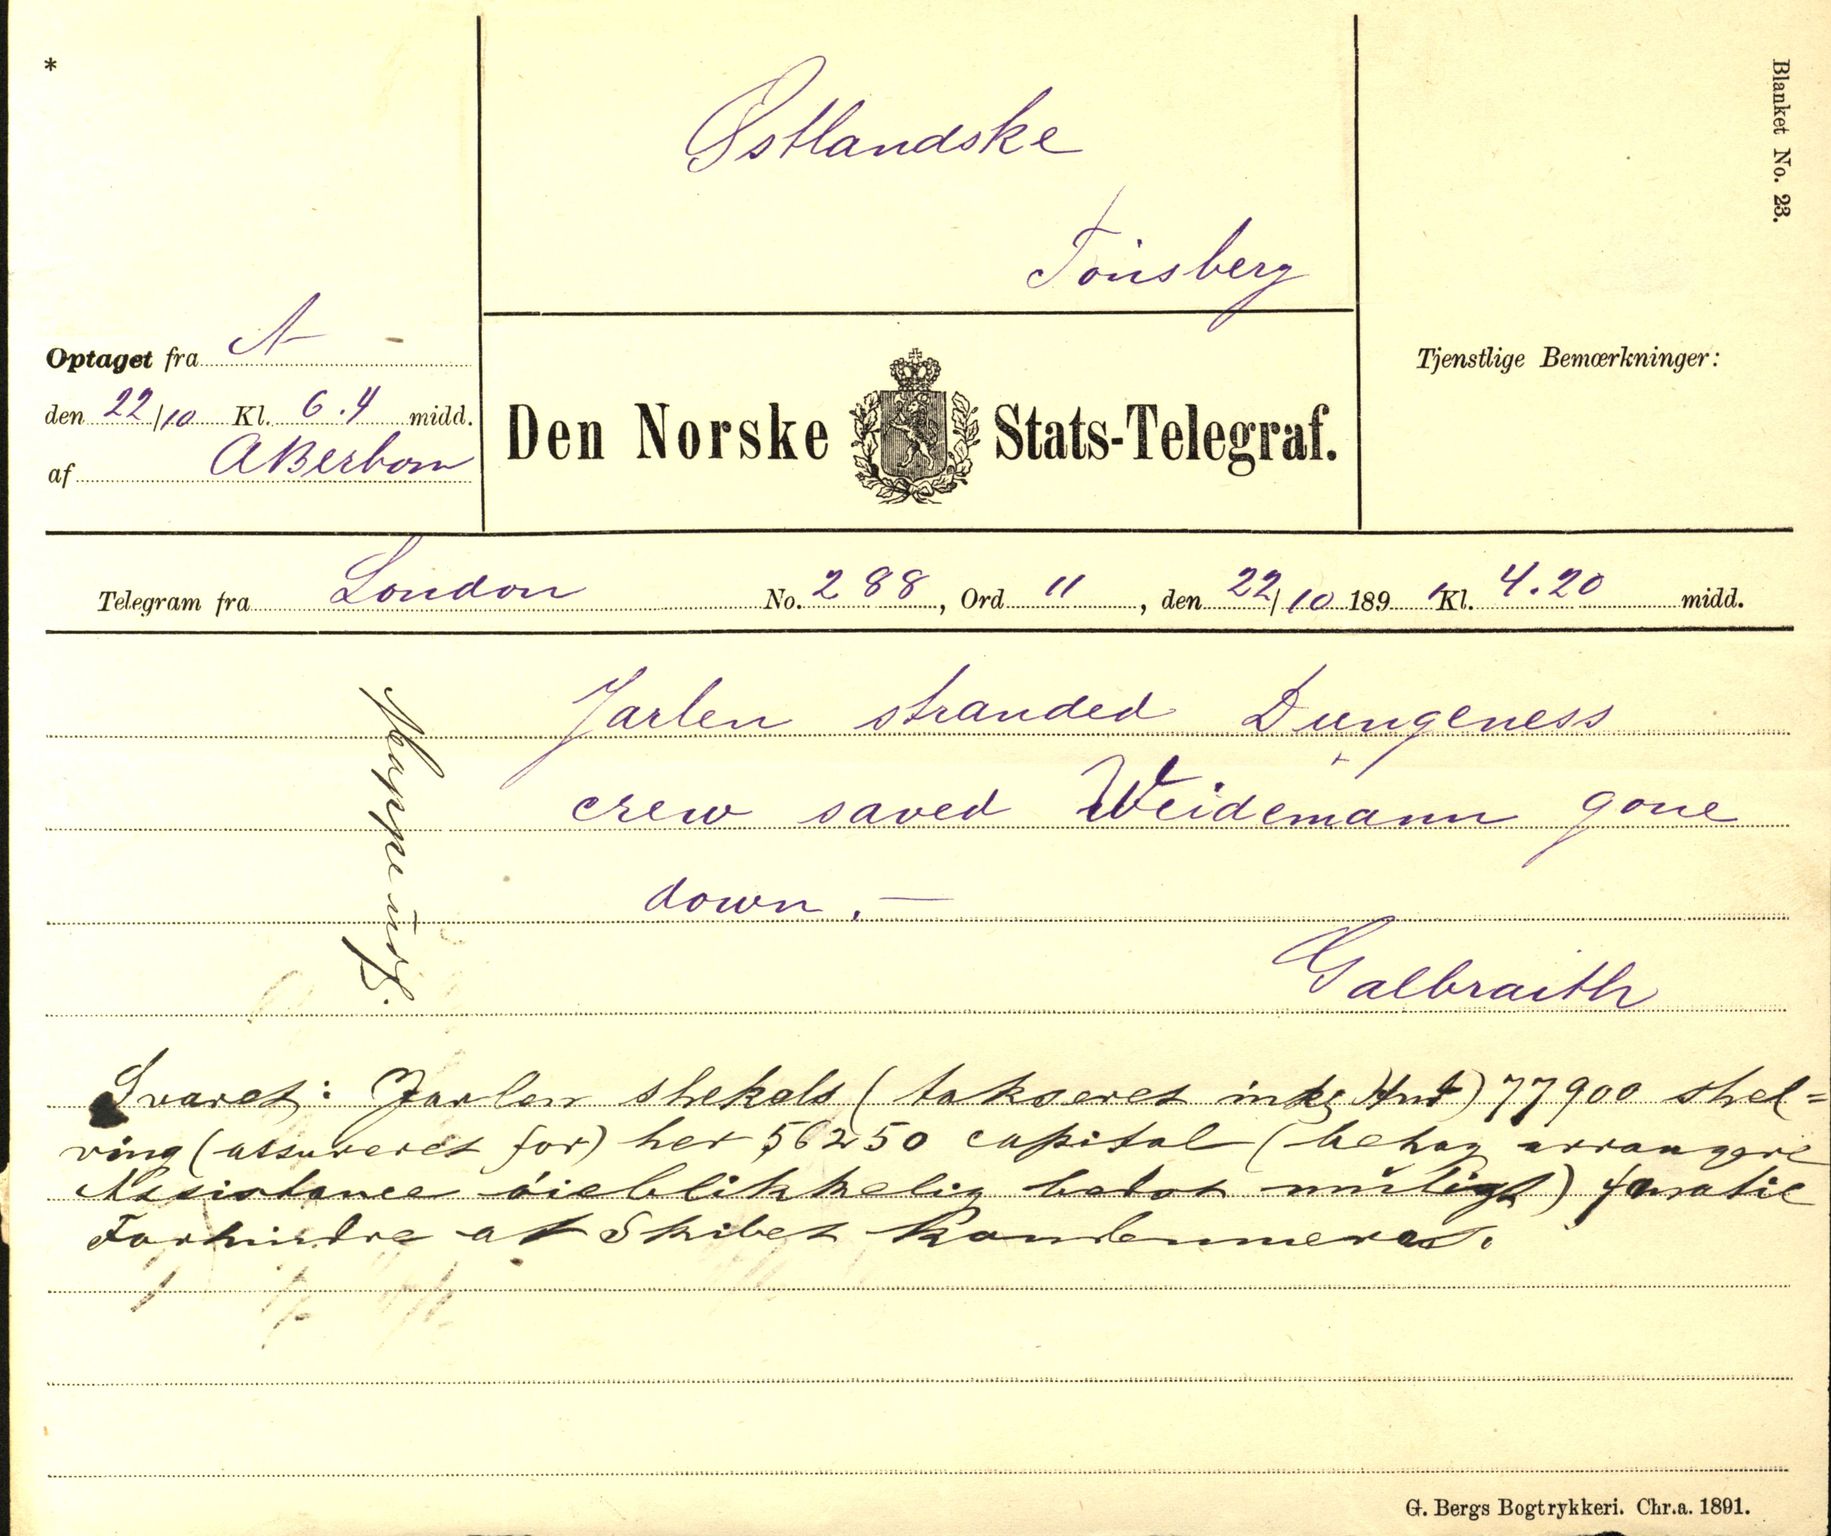 *
Blanket No. 23.
Østlandske
Tönsberg
Optaget fra A
den 22/10 Kl. 6.4 midd.
af ABerbom
Den Norske Stats-Telegraf.
Tjenstlige Bemærkninger:
Telegram fra London No. 288, Ord 11, den 22/10 1891 Kl. 4.20 midd.
Jarlen stranded Dungeness
crew saved Weidemann gone
down. —
Galbraith
Svaret: Jarlen shekels (takseret 77900 shel=
ving (assureret for) her 56250 capital (behag arrangere
Assistance öieblikkelig betot muligt) fanatic
Forhindre at Skibet Kondemneres.
G. Bergs Bogtrykkeri. Chr.a. 1891.